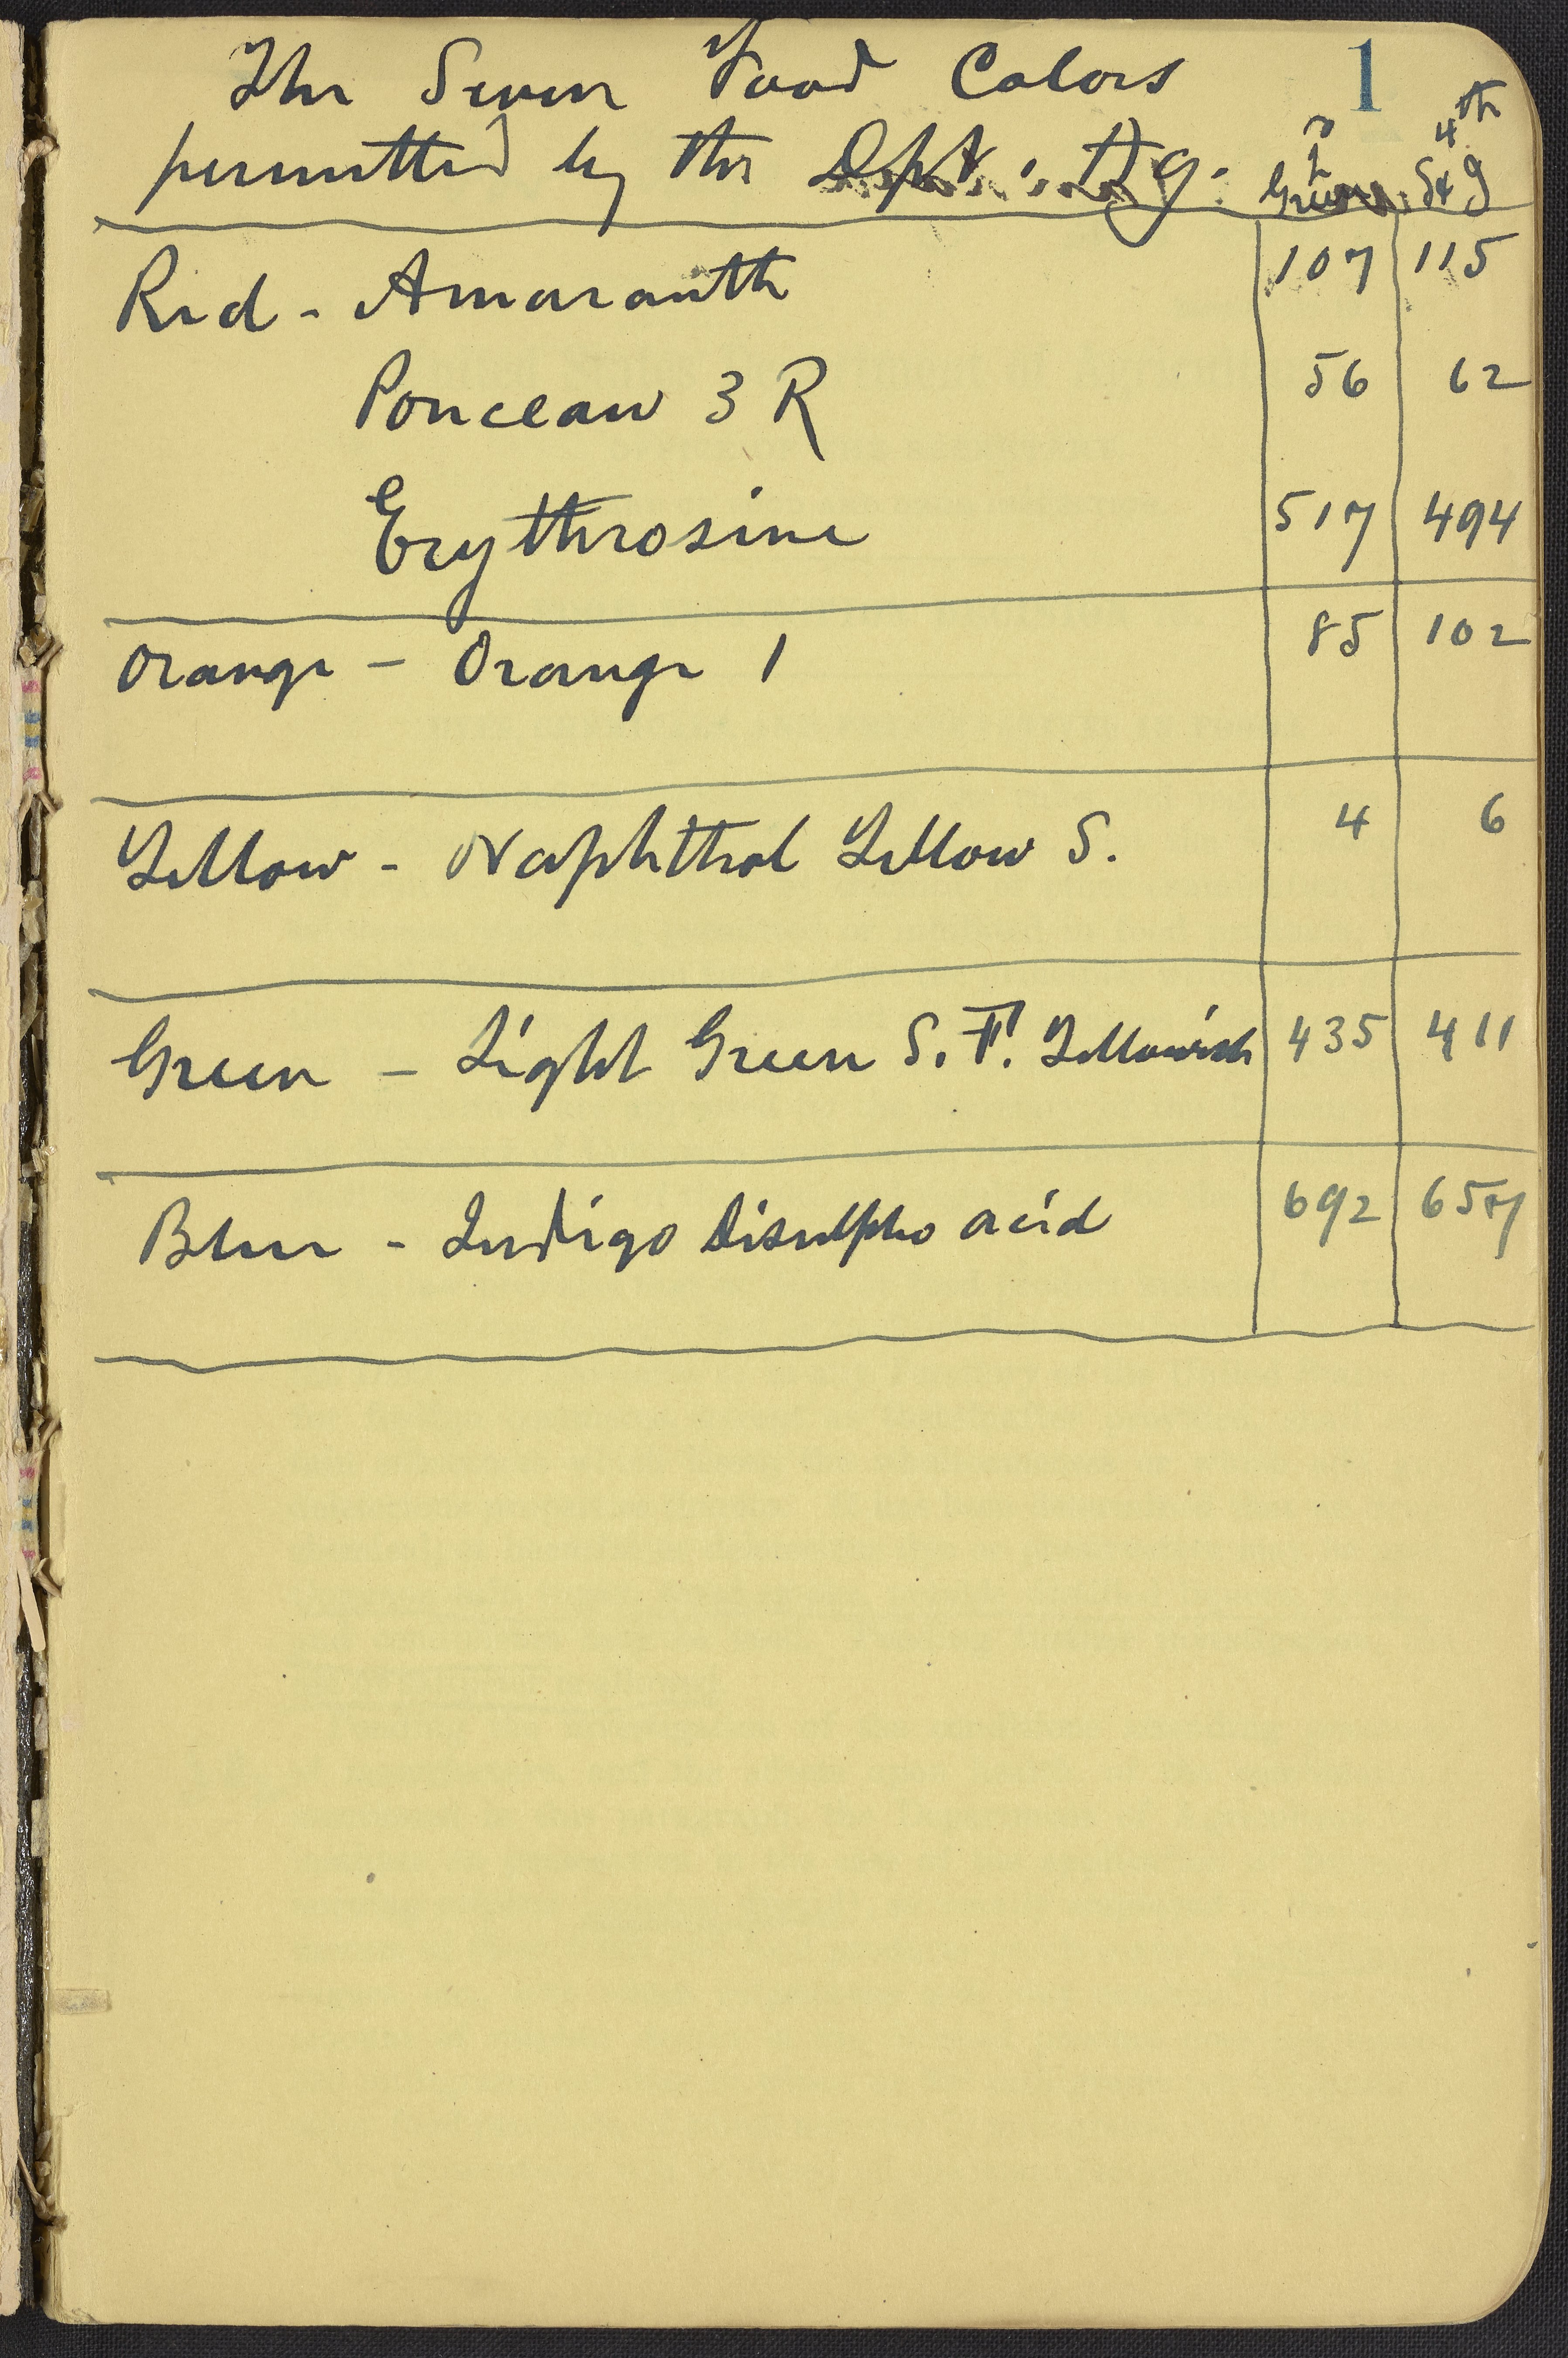 1
The Seven Food Colors
permitted by the Dpt. Ag. Green 4th S & J
Red - Amaranth 107 115
Ponceau 3 R 56 62
Erythrosine 517 494
Orange - Orange 1 85 102
Yellow - Naphthol Yellow S. 4 6
Green - Light Green S. F. Yellowish 435 411
Blue - Indigo disulpho acid 692 657